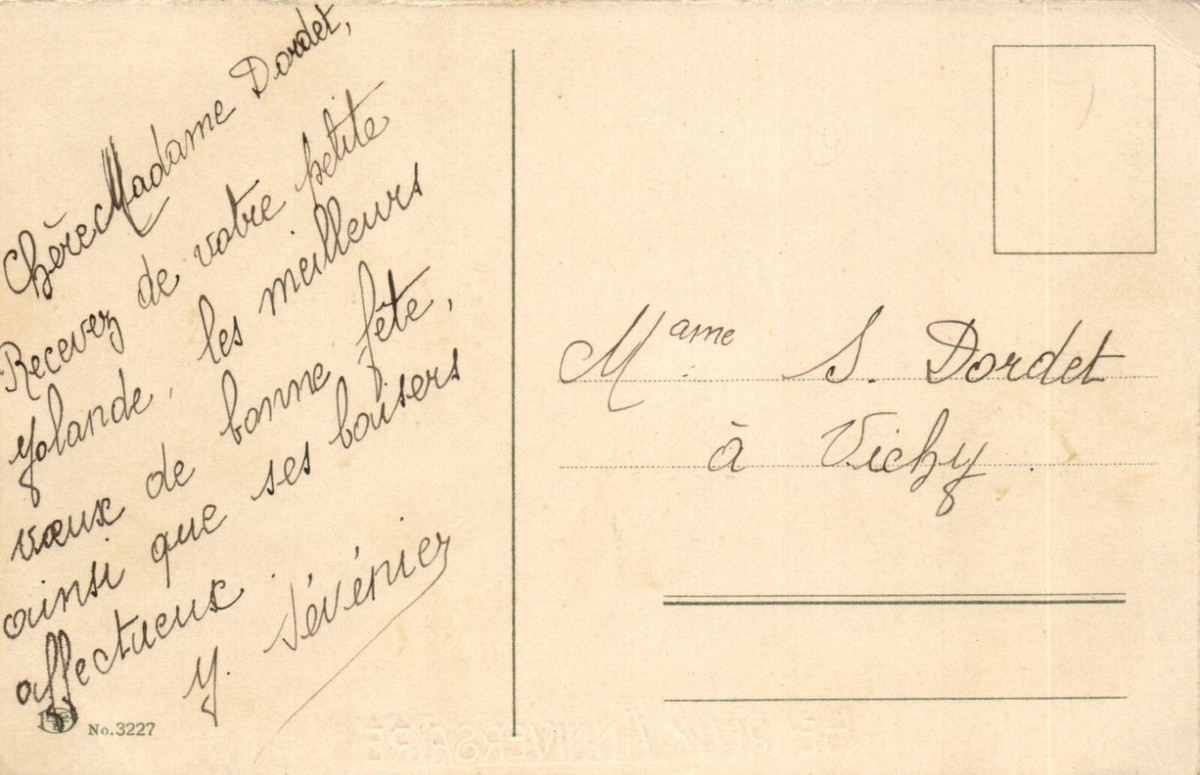 Chère Madame Dordet,
Recevez de votre petite
Yolande, les meilleurs
vœux de bonne fête,
ainsi que ses baisers
affectueux.
Y. Sévénier
No. 3227
Mame S. Dordet
à Vichy.
HEUREUX ANNIVERSAIRE